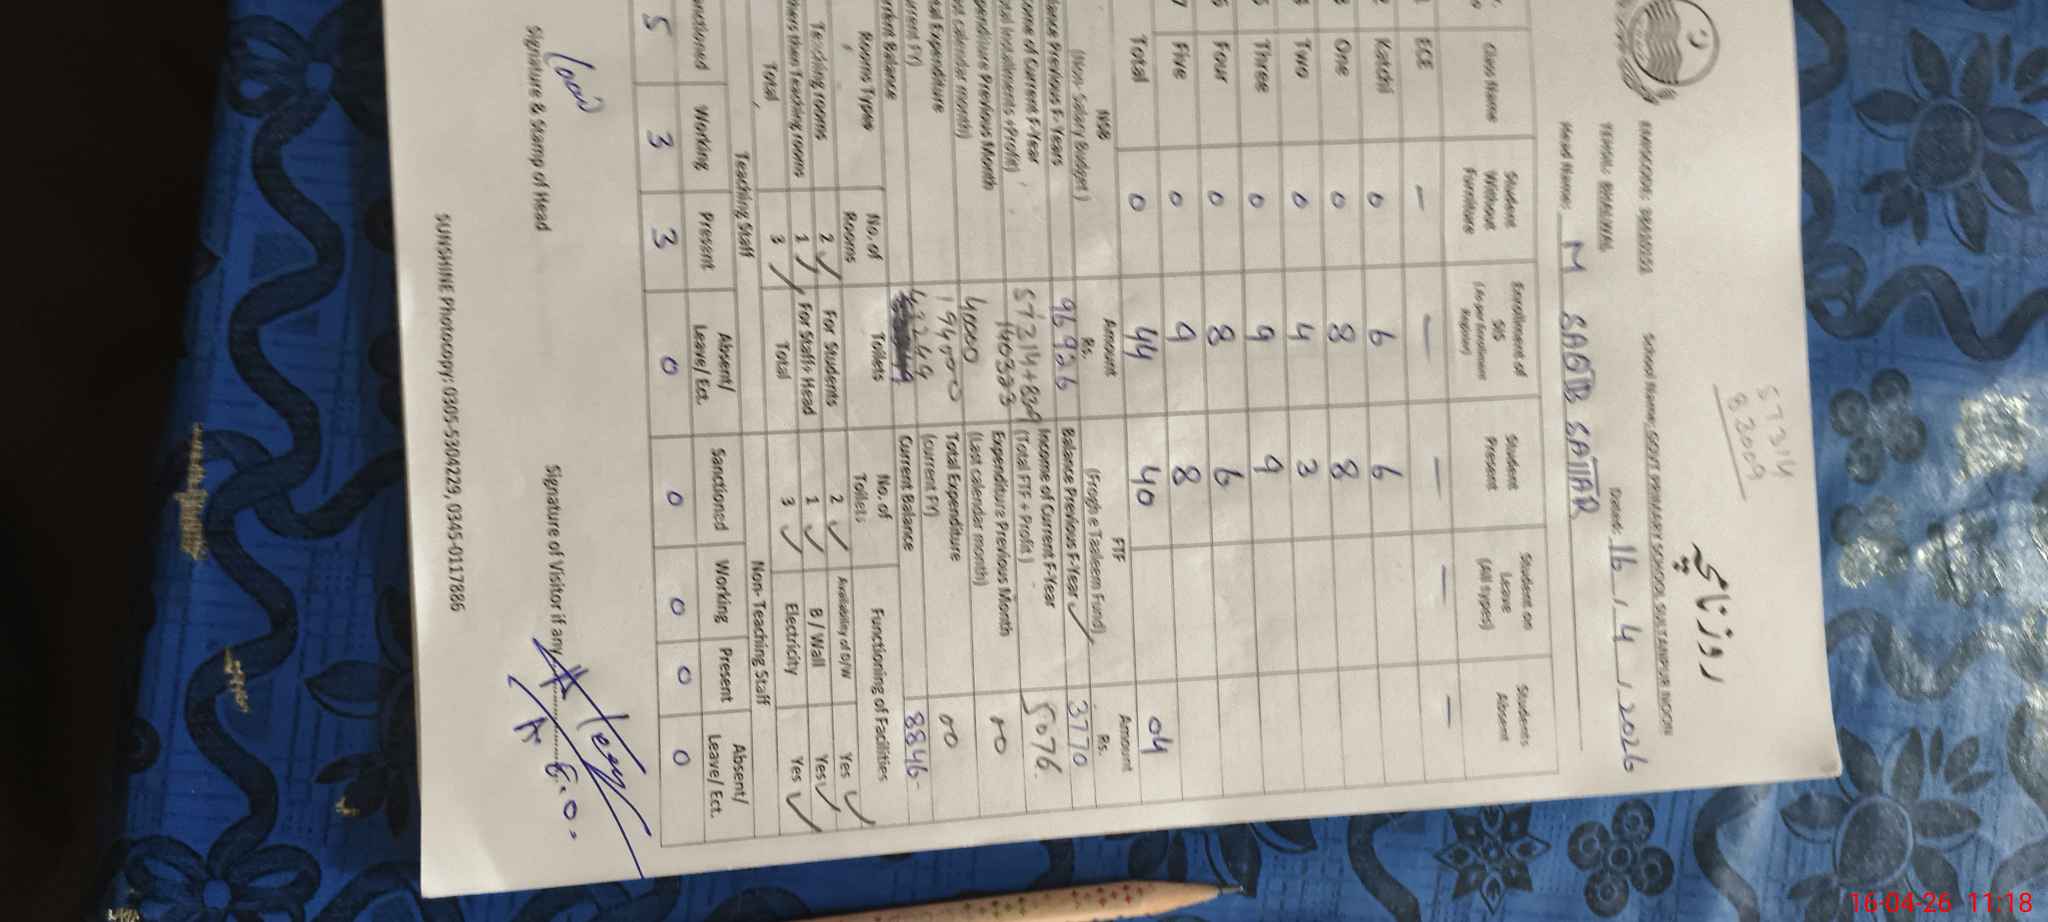 57314
83009
روزنامچہ
School Name: GOVT PRIMARY SCHOOL SULTANPUR NOON
TEHSIL: BHALWAL Dated: 16, 4, 2026
Head Name: M SAQIB SATTAR
Class Name Student Without Furniture Enrollment of SIS (As per Enrollment Register) Student Present Student on Leave (All types) Students Absent
ECE — — — — —
Katchi 0 6 6
One 0 8 8
Two 0 4 3
Three 0 9 9
Four 0 8 6
Five 0 9 8
Total 0 44 40 04
NSB (Non- Salary Budget) Amount Rs. FTF (Frogh e Taaleem Fund) Amount Rs.
lance Previous F- Years 96926 Balance Previous F-Year 3770
ome of Current F-Year Income of Current F-Year
tal Installments +Profit) (Total FTF + Profit) 5076
penditure Previous Month 40000 Expenditure Previous Month 00
st calendar month) (Last calendar month)
al Expenditure 194000 Total Expenditure 00
urrent FY) (current FY)
rrent Balance 43249 Current Balance 8846-
Rooms Types No. of Rooms Toilets No. of Toilets Functioning of Facilities
Teaching rooms 2 For Students 2 Availability of D/W Yes
thers then Teaching rooms 1 For Staff+ Head 1 B / Wall Yes
Total 3 Total 3 Electricity Yes
Teaching Staff Non- Teaching Staff
nctioned Working Present Absent/ Leave/ Ect. Sanctioned Working Present Absent/ Leave/ Ect.
5 3 3 0 0 0 0 0
Signature & Stamp of Head Signature of Visitor if any
A.E.O.
SUNSHINE Photocopy: 0305-5304229, 0345-0117886
16-04-26 11:18